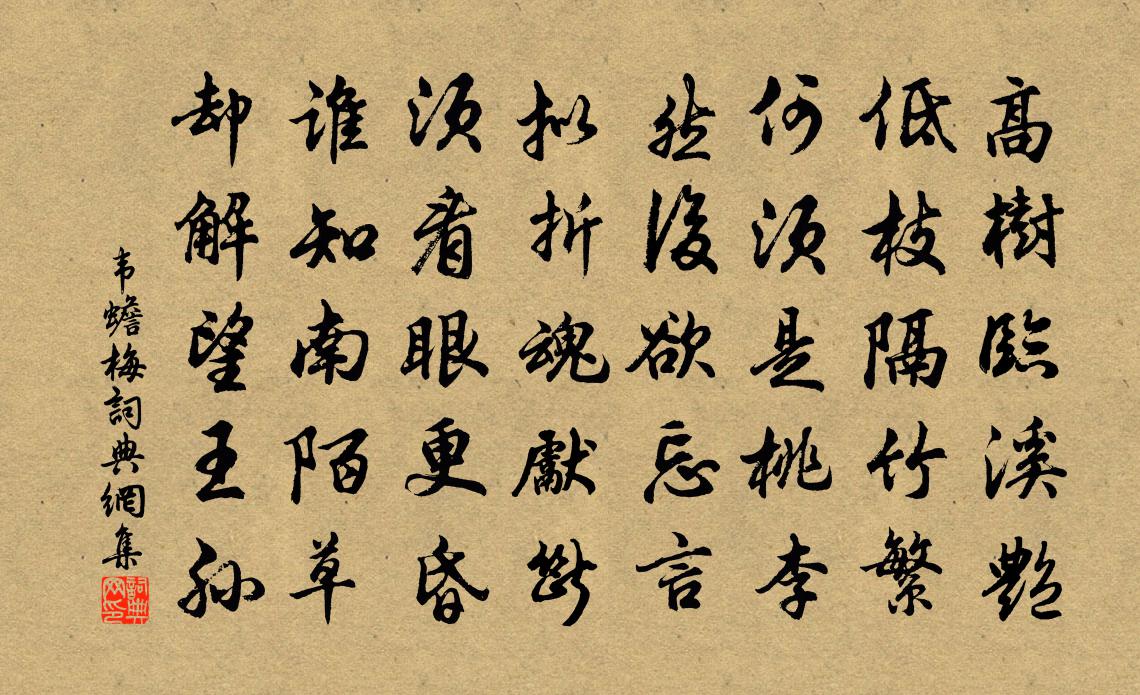 高樹臨溪艷
低枝隔竹繁
何須是桃李
然後欲忘言
拟折魂獻斷
須看眼更昏
誰知南陌草
却解望王孫
韦蟾梅詞典網集
詞典网印